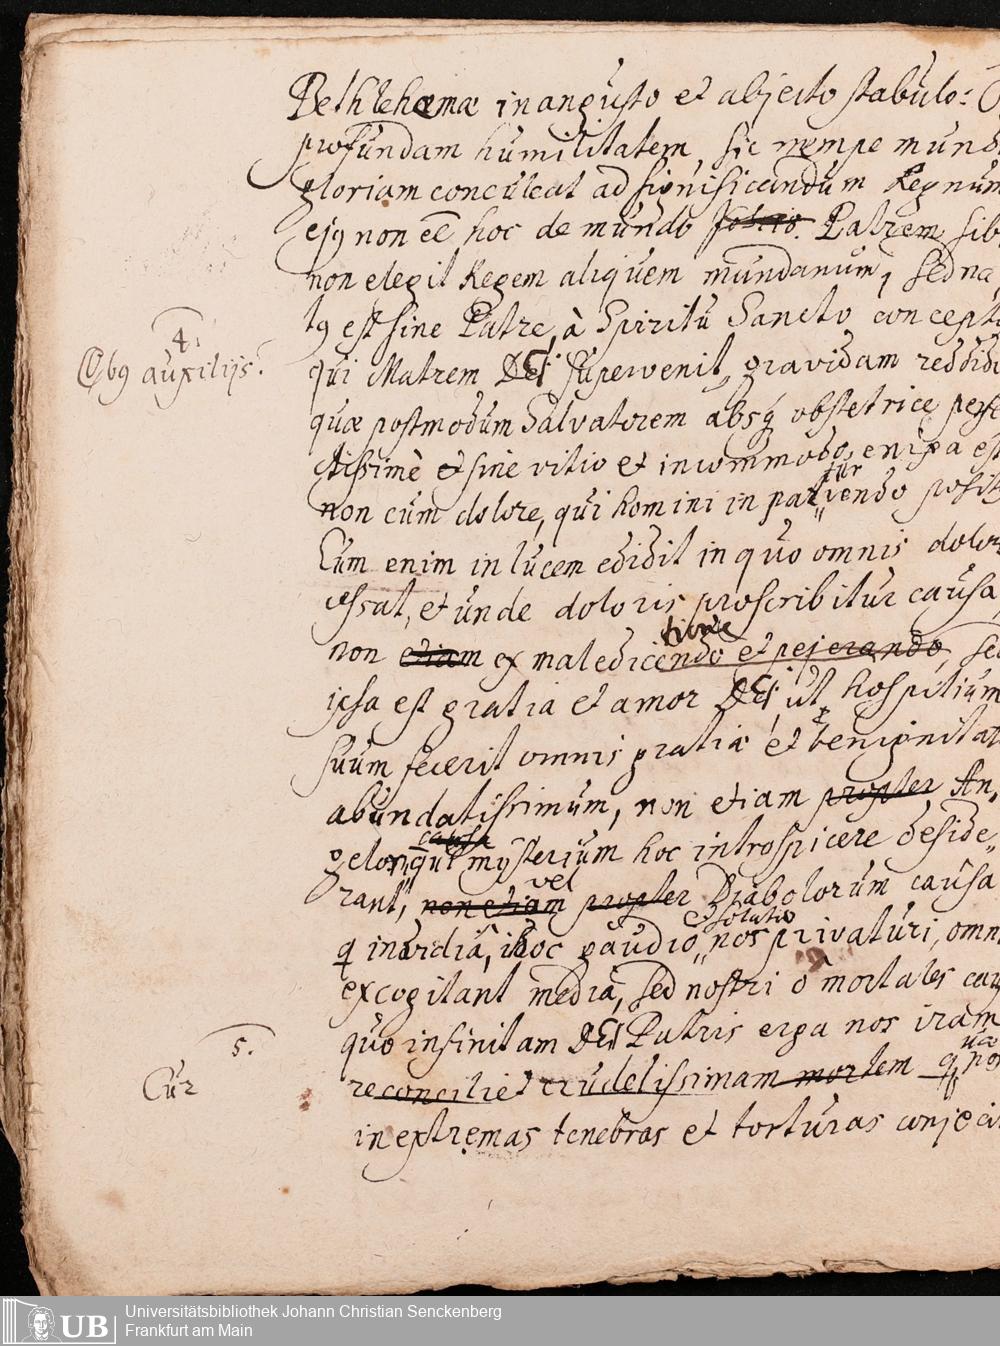 Bethlehemæ in angusto et abjecto stabulo: O
profundam humilitatem, sic nempe mundi
gloriam conculcat ad significandum Regnum
ejꝰ non eē hoc de mundo Patrem sibi
non elegit Regem aliquem mundanum, sed na,
4.
Qbꝰ auxilijs?
tꝰ est sine Patre, à Spiritu Sancto concept
qui Matrem DEI supervenit, gravidam reddidi
quæ postmodum Salvatorem absq obstetrice perfe
ctissimè et sine vitio et incommodo, enixa est
non cum dolore, qui homini in pariendo posit
tur
Eum enim in lucem edidit in quo omnis dolor
cessat, et unde doloris proscribitur causa,
tione
non etiam ex maledicendo et pejerando, sed
ipsa est gratia et amor DEI, ut hospitium
suum fecerit omnis gratiæ et benignitat
abundatissimum, non etiam propter An,
causa
gelor, qui mysterium hoc introspicere deside,,
vel
rant, non etiam propter Diabolorum causa
solatio
q invidiâ, hoc gaudio nos privaturi, omn
excogitant media, sed nostri ô mortales cau
5.
Cur
quo infinitam DEI Patris erga nos iram
reconciliet crudelissimam mortem q nos
in extremas tenebras et torturas conjeci
Universitätsbibliothek Johann Christian Senckenberg
Frankfurt am Main
UB